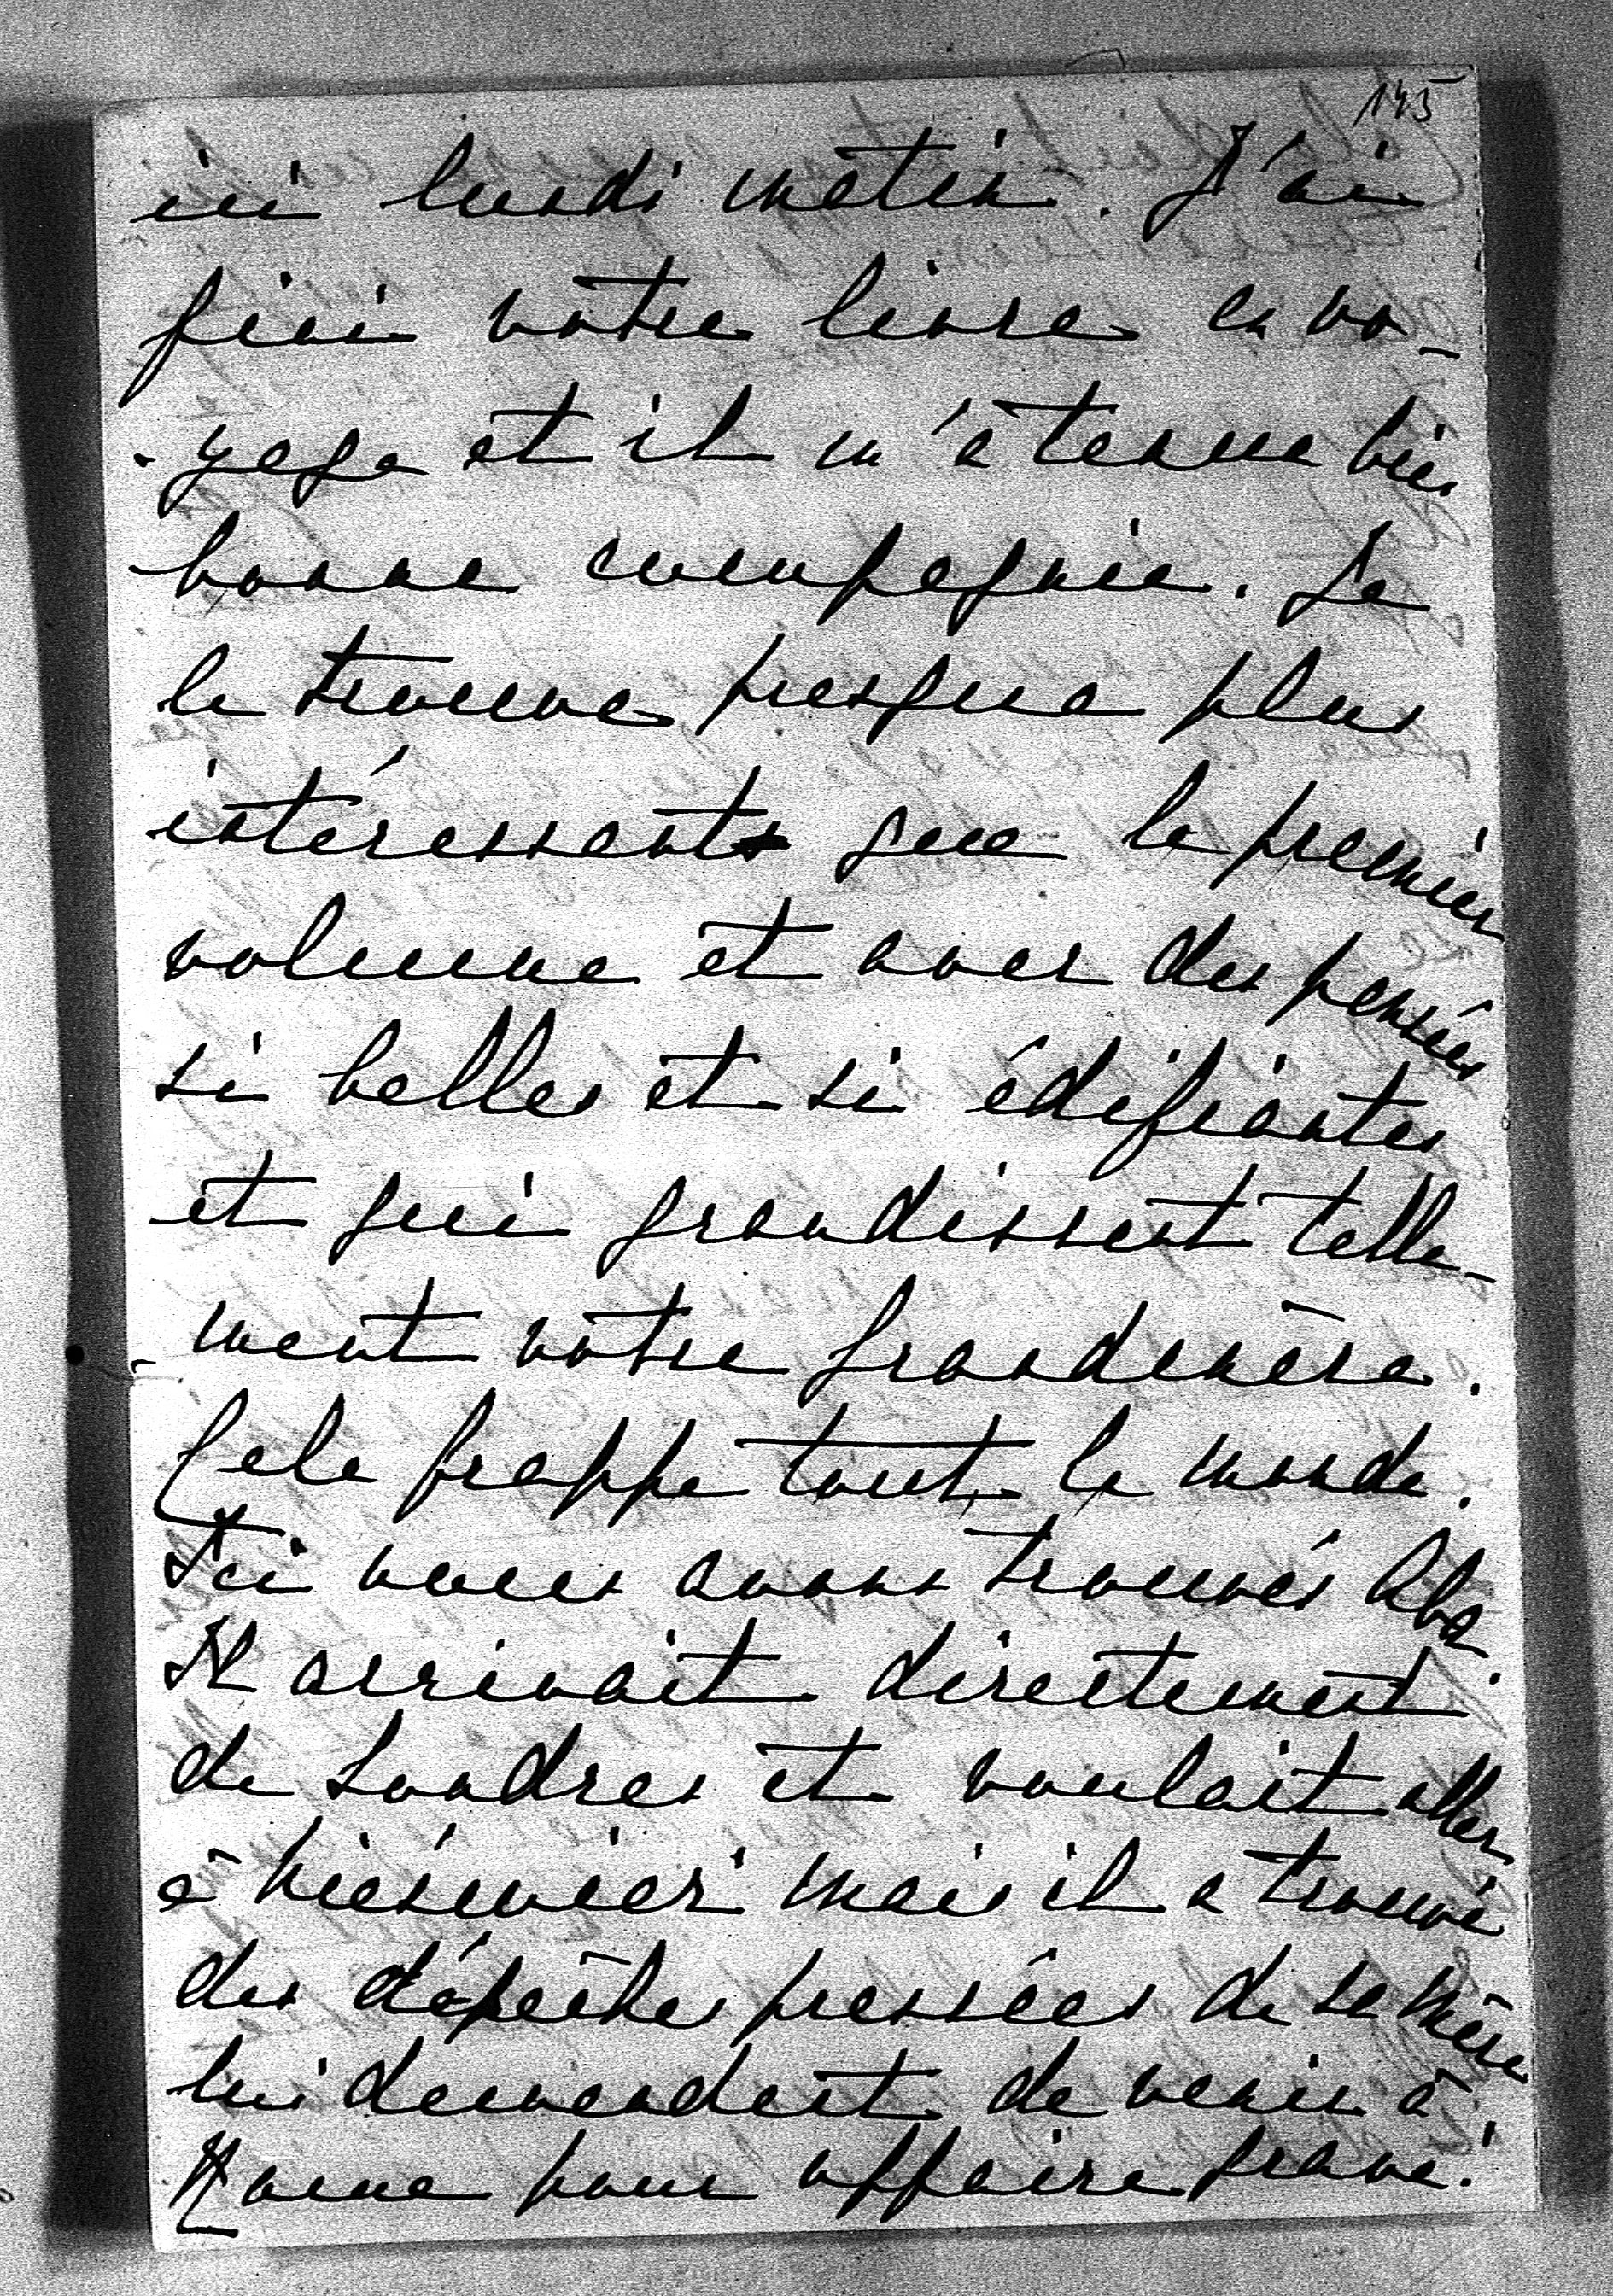 145
ici lundi matin. J'ai
fini votre livre en vo-
-yage et il m'a tenue bien
bonne compagnie. Je
le trouve presque plus
intéressant que le premier
volume et avec des pensées
si belles et si édifiantes
et qui grandissent telle-
-ment votre grandmère.
Cela frappe tout le monde.
Ici nous avons trouvés Aba.
Il arrivait directement
de Londres et voulait aller
à mais il a trouvé
des dépêches pressées de sa mère
lui demandant de venir à
Rome pour affaire grave!